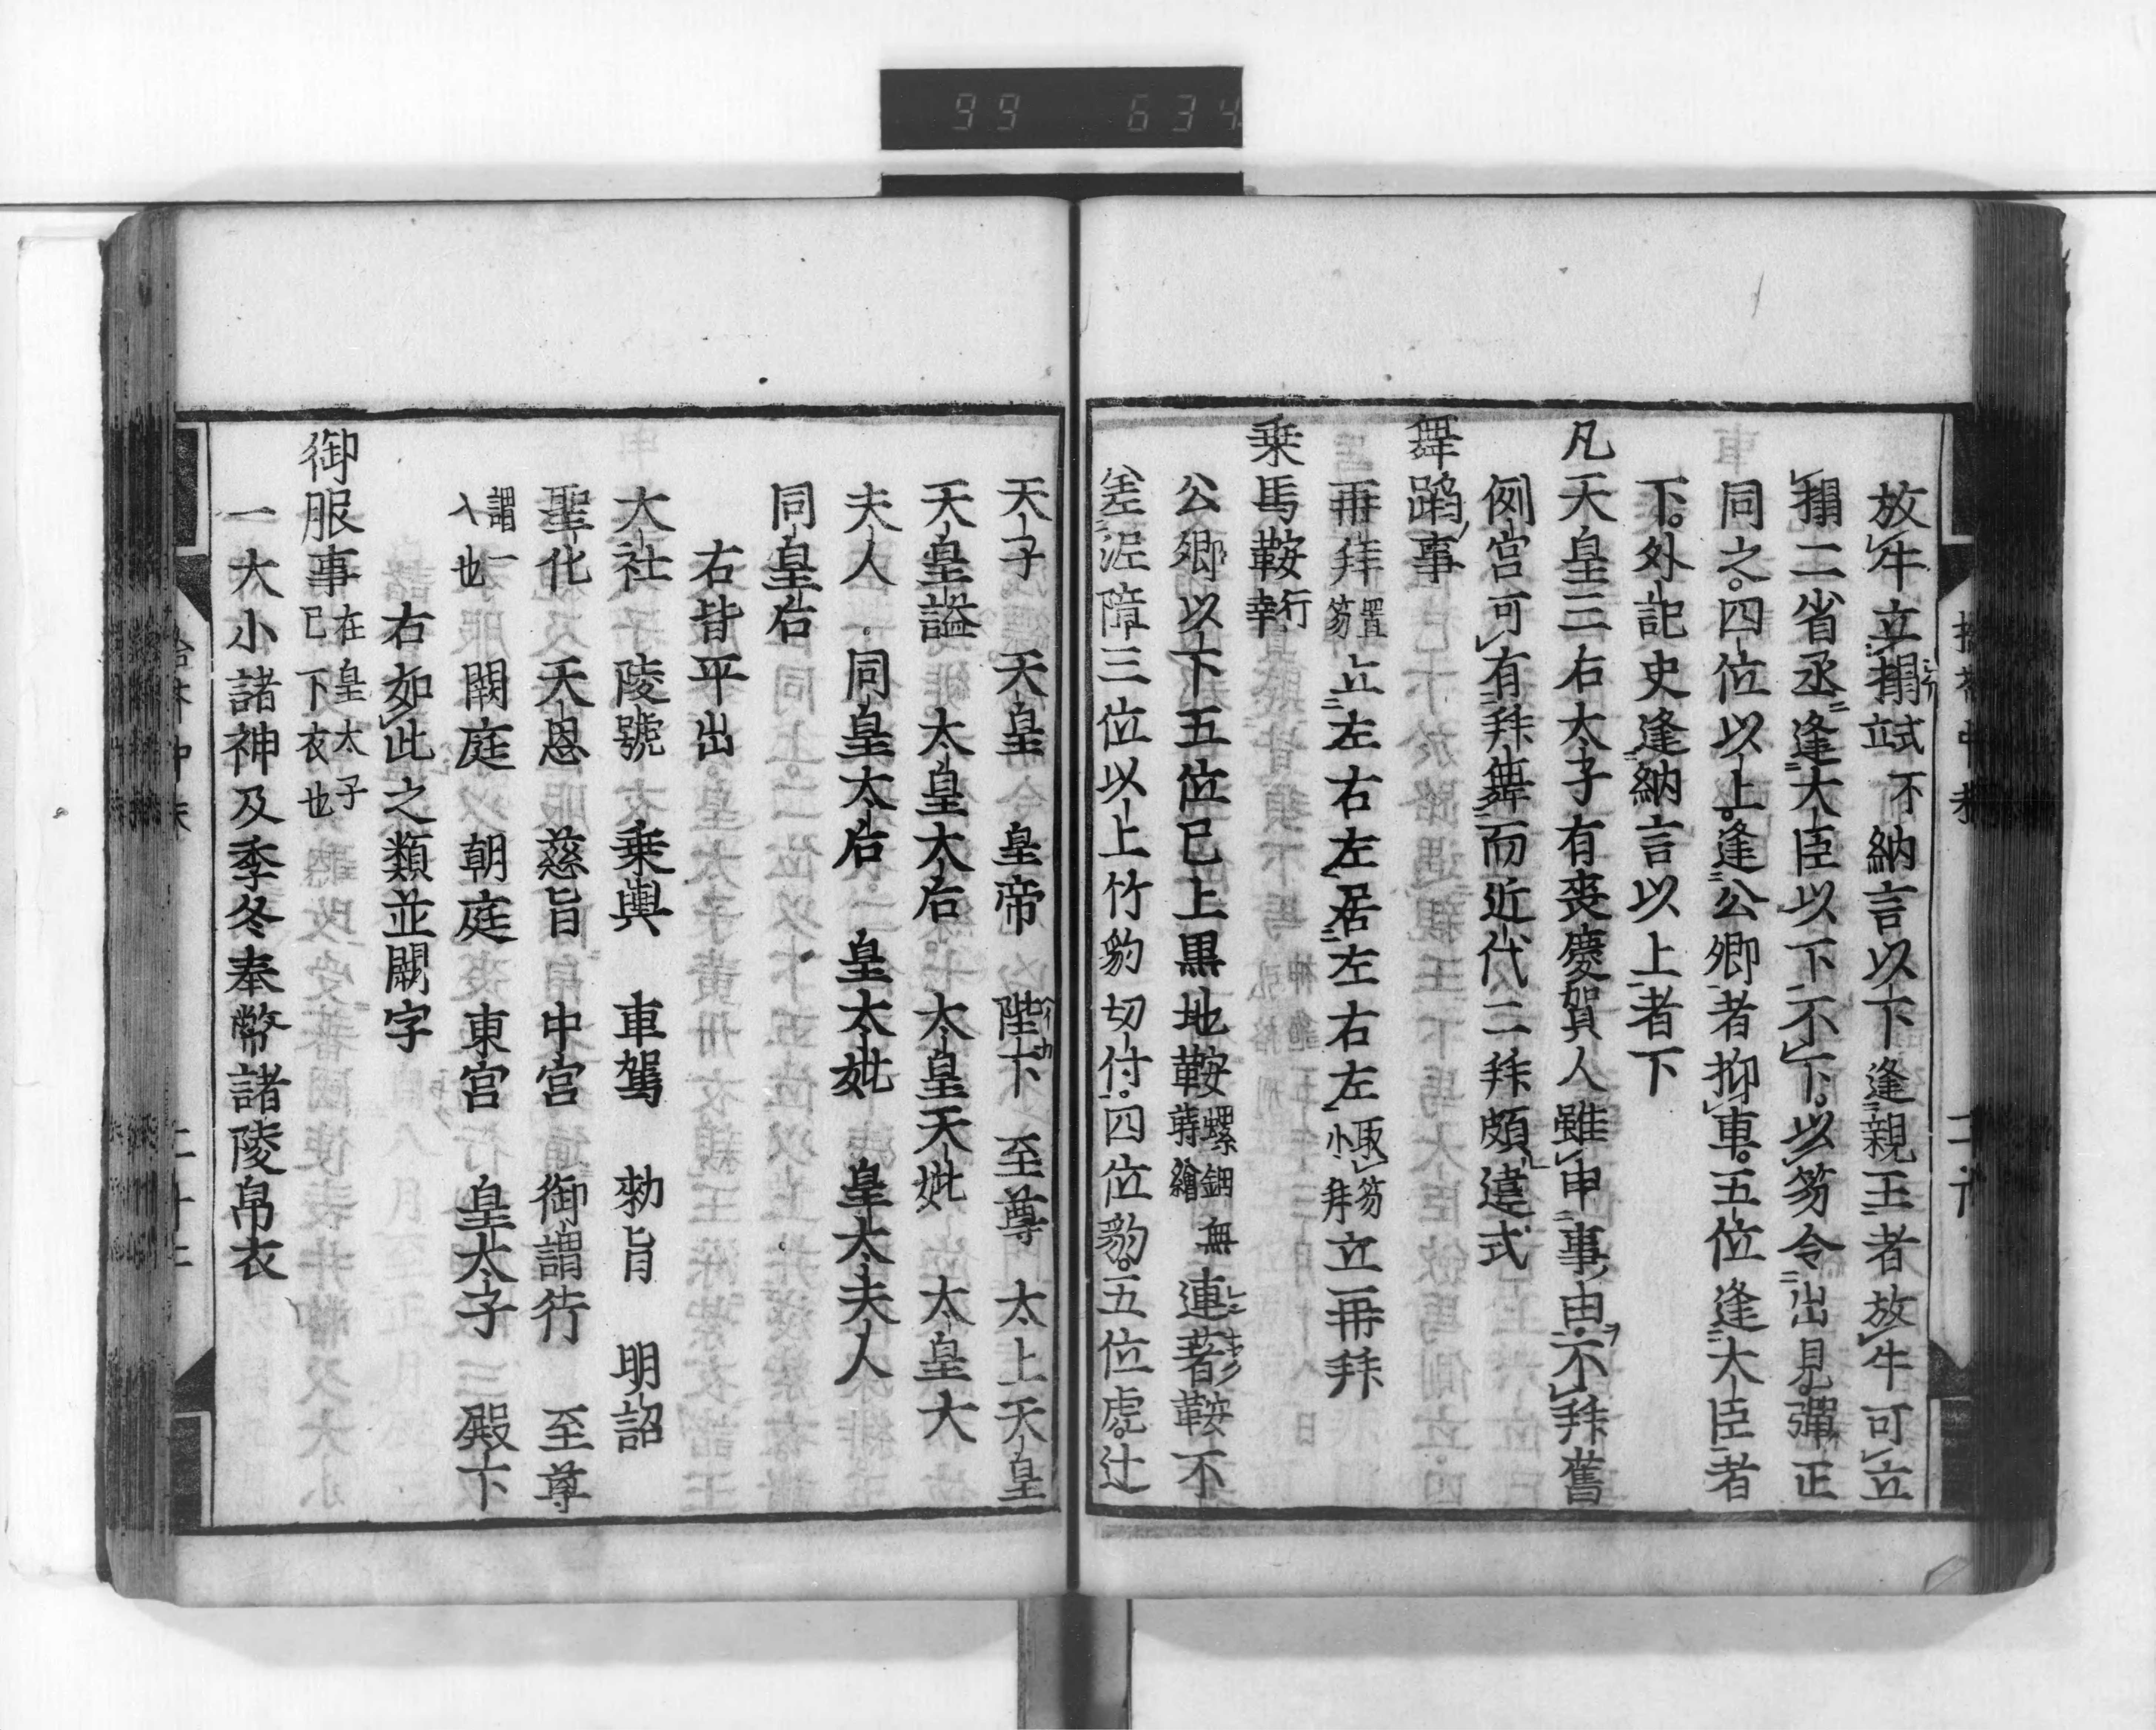 99 634
放牛立搨式不立納言以下逢親王者放牛可立
搨二省丞逢大臣以下不下以笏令出見彈正
同之四位以上逢公卿者抑車五位逢大臣者
下外記史逢納言以上者下
凡天皇三右大子有喪慶賀人雖申事由不拜舊
例宮可有拜舞而近代二拜頗違式
舞蹈事
再拜置笏立左右左居左右左取笏小拜立再拜
乗馬鞍行幸
公卿以下五位已上黒地鞍螺鈿蒔繪無連著鞍不
差泥障三位以上竹豹切付四位豹五位虎辻
天子 天皇 皇帝 陛下 至尊 太上天皇
天皇謚 太皇大后 大皇天妣 太皇大
夫人 同皇太后 皇太妣 皇太夫人
同皇后
右皆平出
大社 陵號 乗輿 車駕 勅旨 明詔
聖化 天恩 慈旨 中宮 御謂行 至尊
謂一人也 闕庭 朝庭 東宮 皇太子 殿下
右如此之類並闕字
御服事在皇太子已下衣也
一大小諸神及季冬奉幣諸陵帛衣